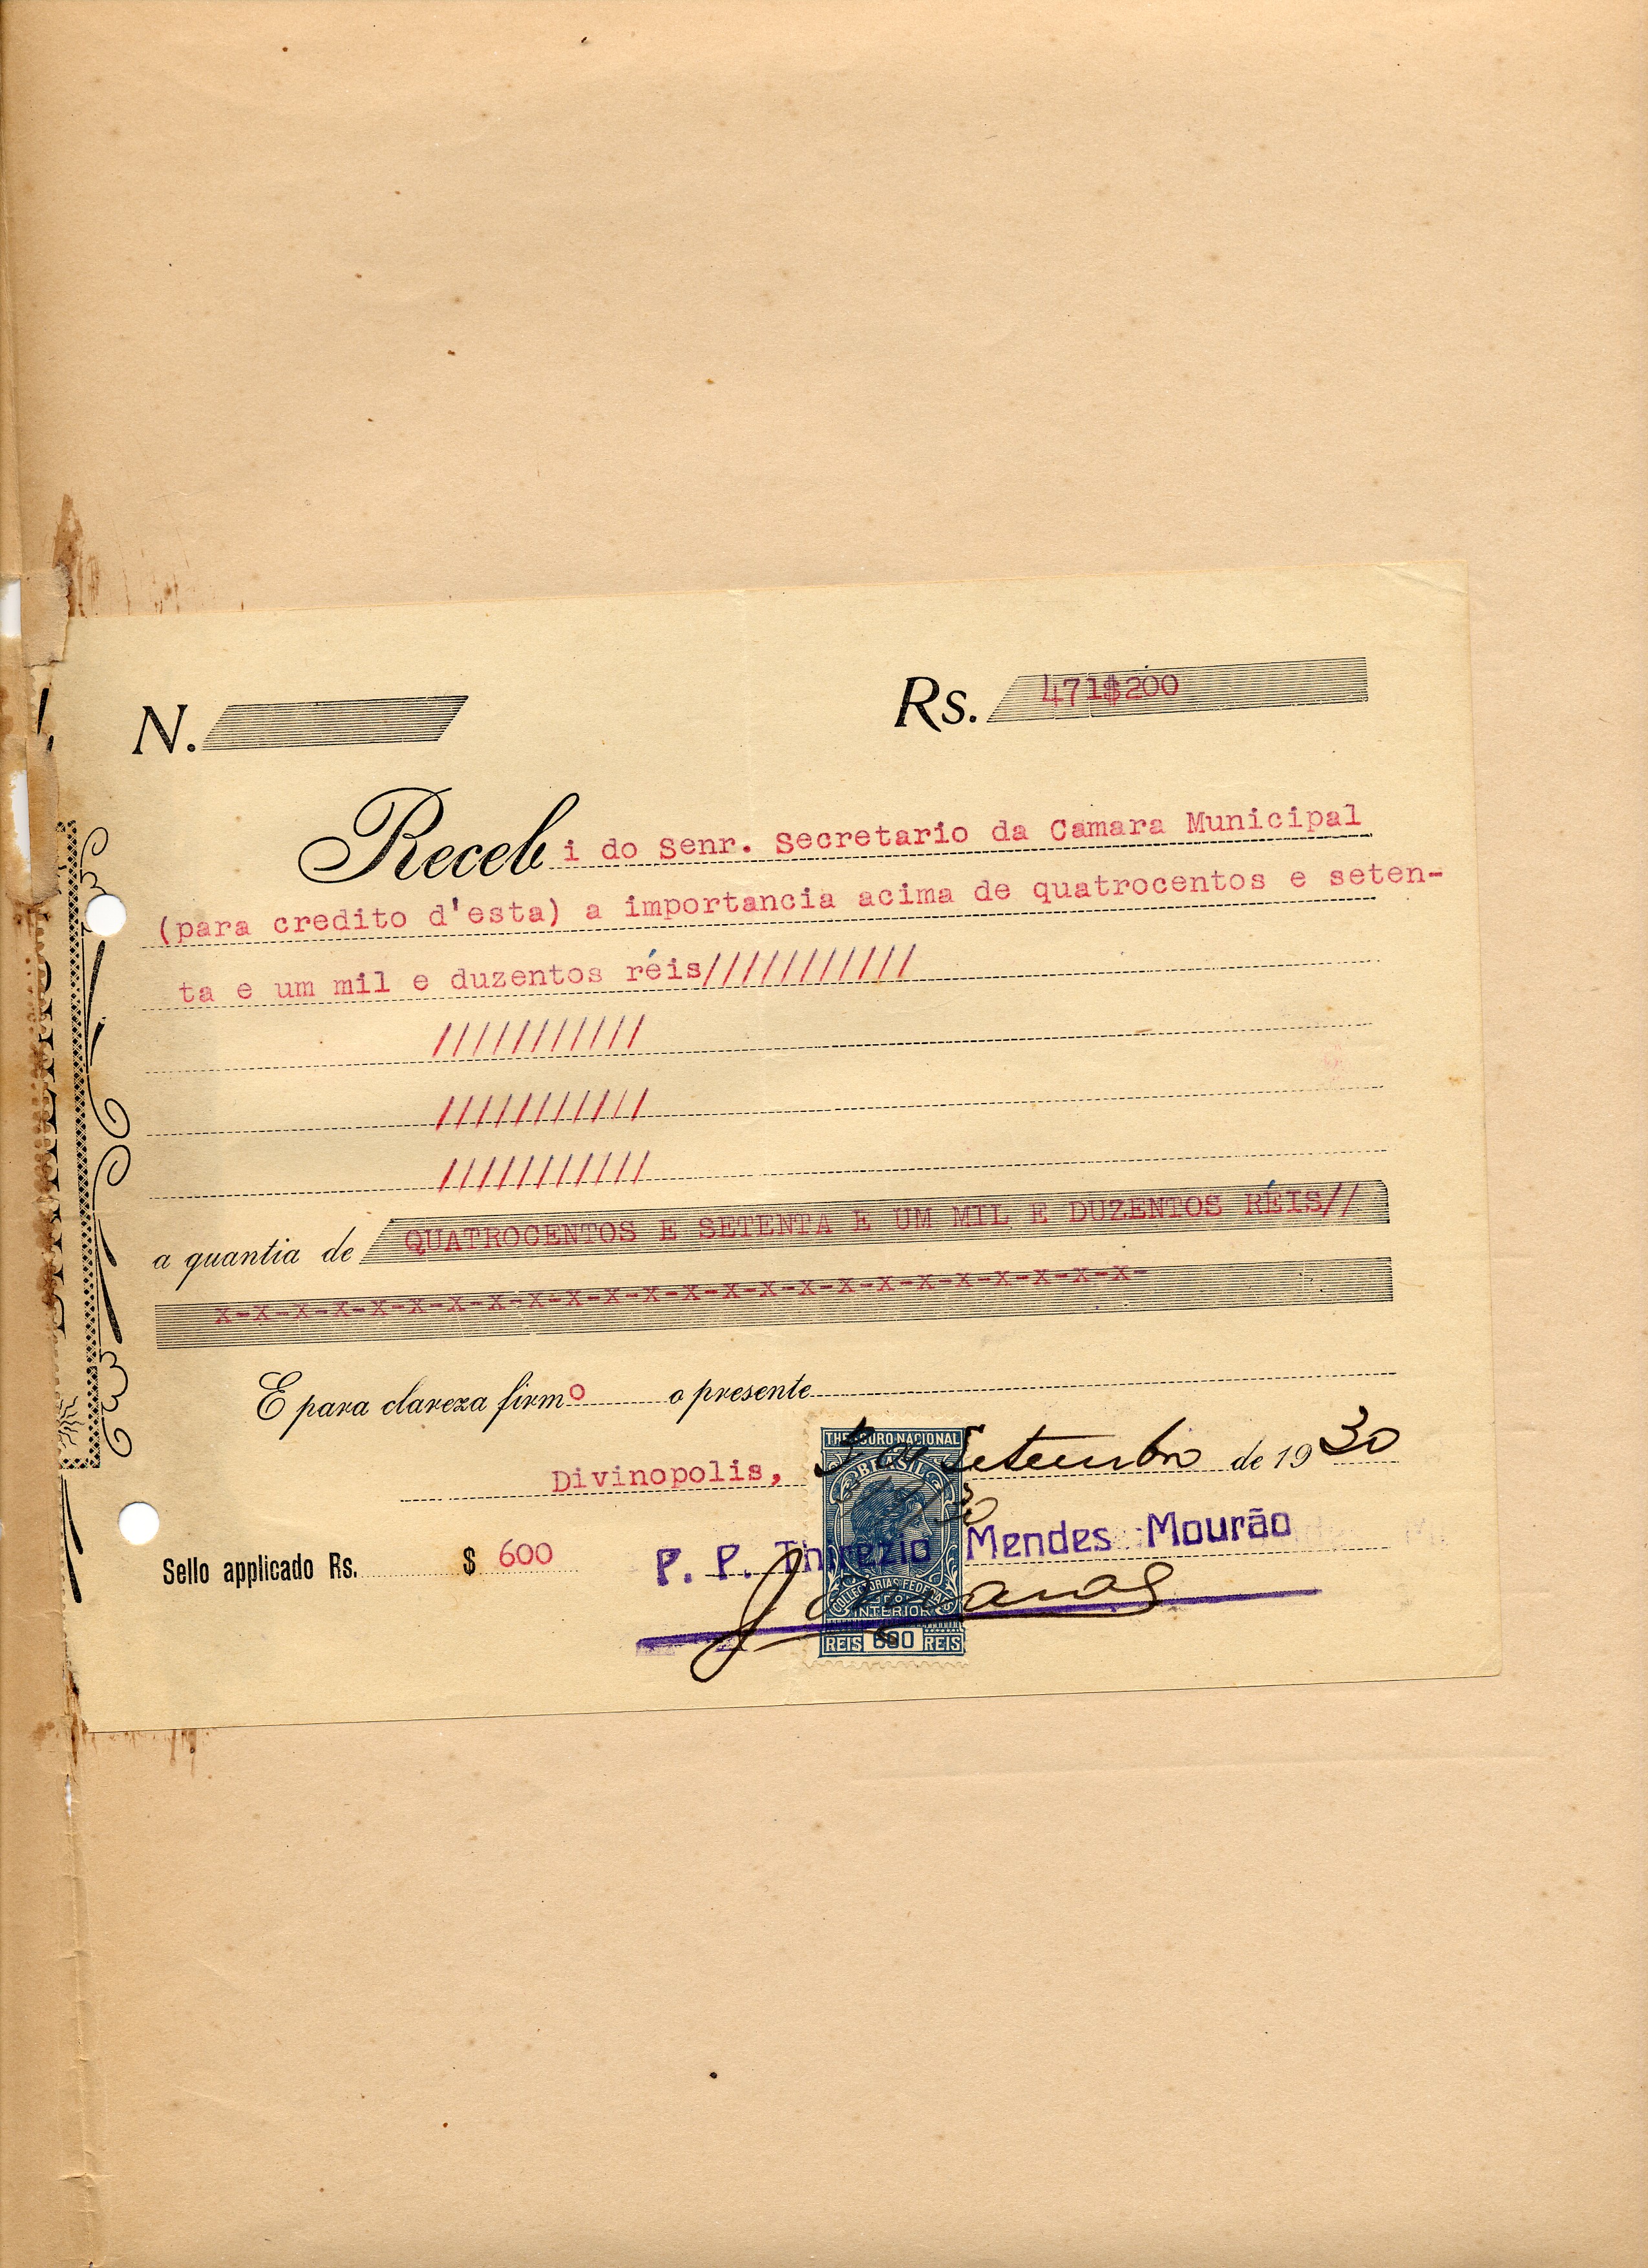 N.
Rs. 471$200
Recebi do Senr. Secretario da Camara Municipal
(para credito d'esta) a importancia acima de quatrocentos e seten-
ta e um mil e duzentos réis///////////
///////////
///////////
///////////
a quantia de QUATROCENTOS E SETENTA E UM MIL E DUZENTOS RÉIS//
x-x-x-x-x-x-x-x-x-x-x-x-x-x-x-x-x-x-x-x-x-x-x-x-
E para clareza firmo o presente
Divinopolis, 3 de Setembro de 1930
THESOURO NACIONAL
BRASIL
Sello applicado Rs. $ 600
P. P. Thirezio Mendes Mourão
COLLECTORIAS FEDERAES
DO
INTERIOR
REIS 600 REIS